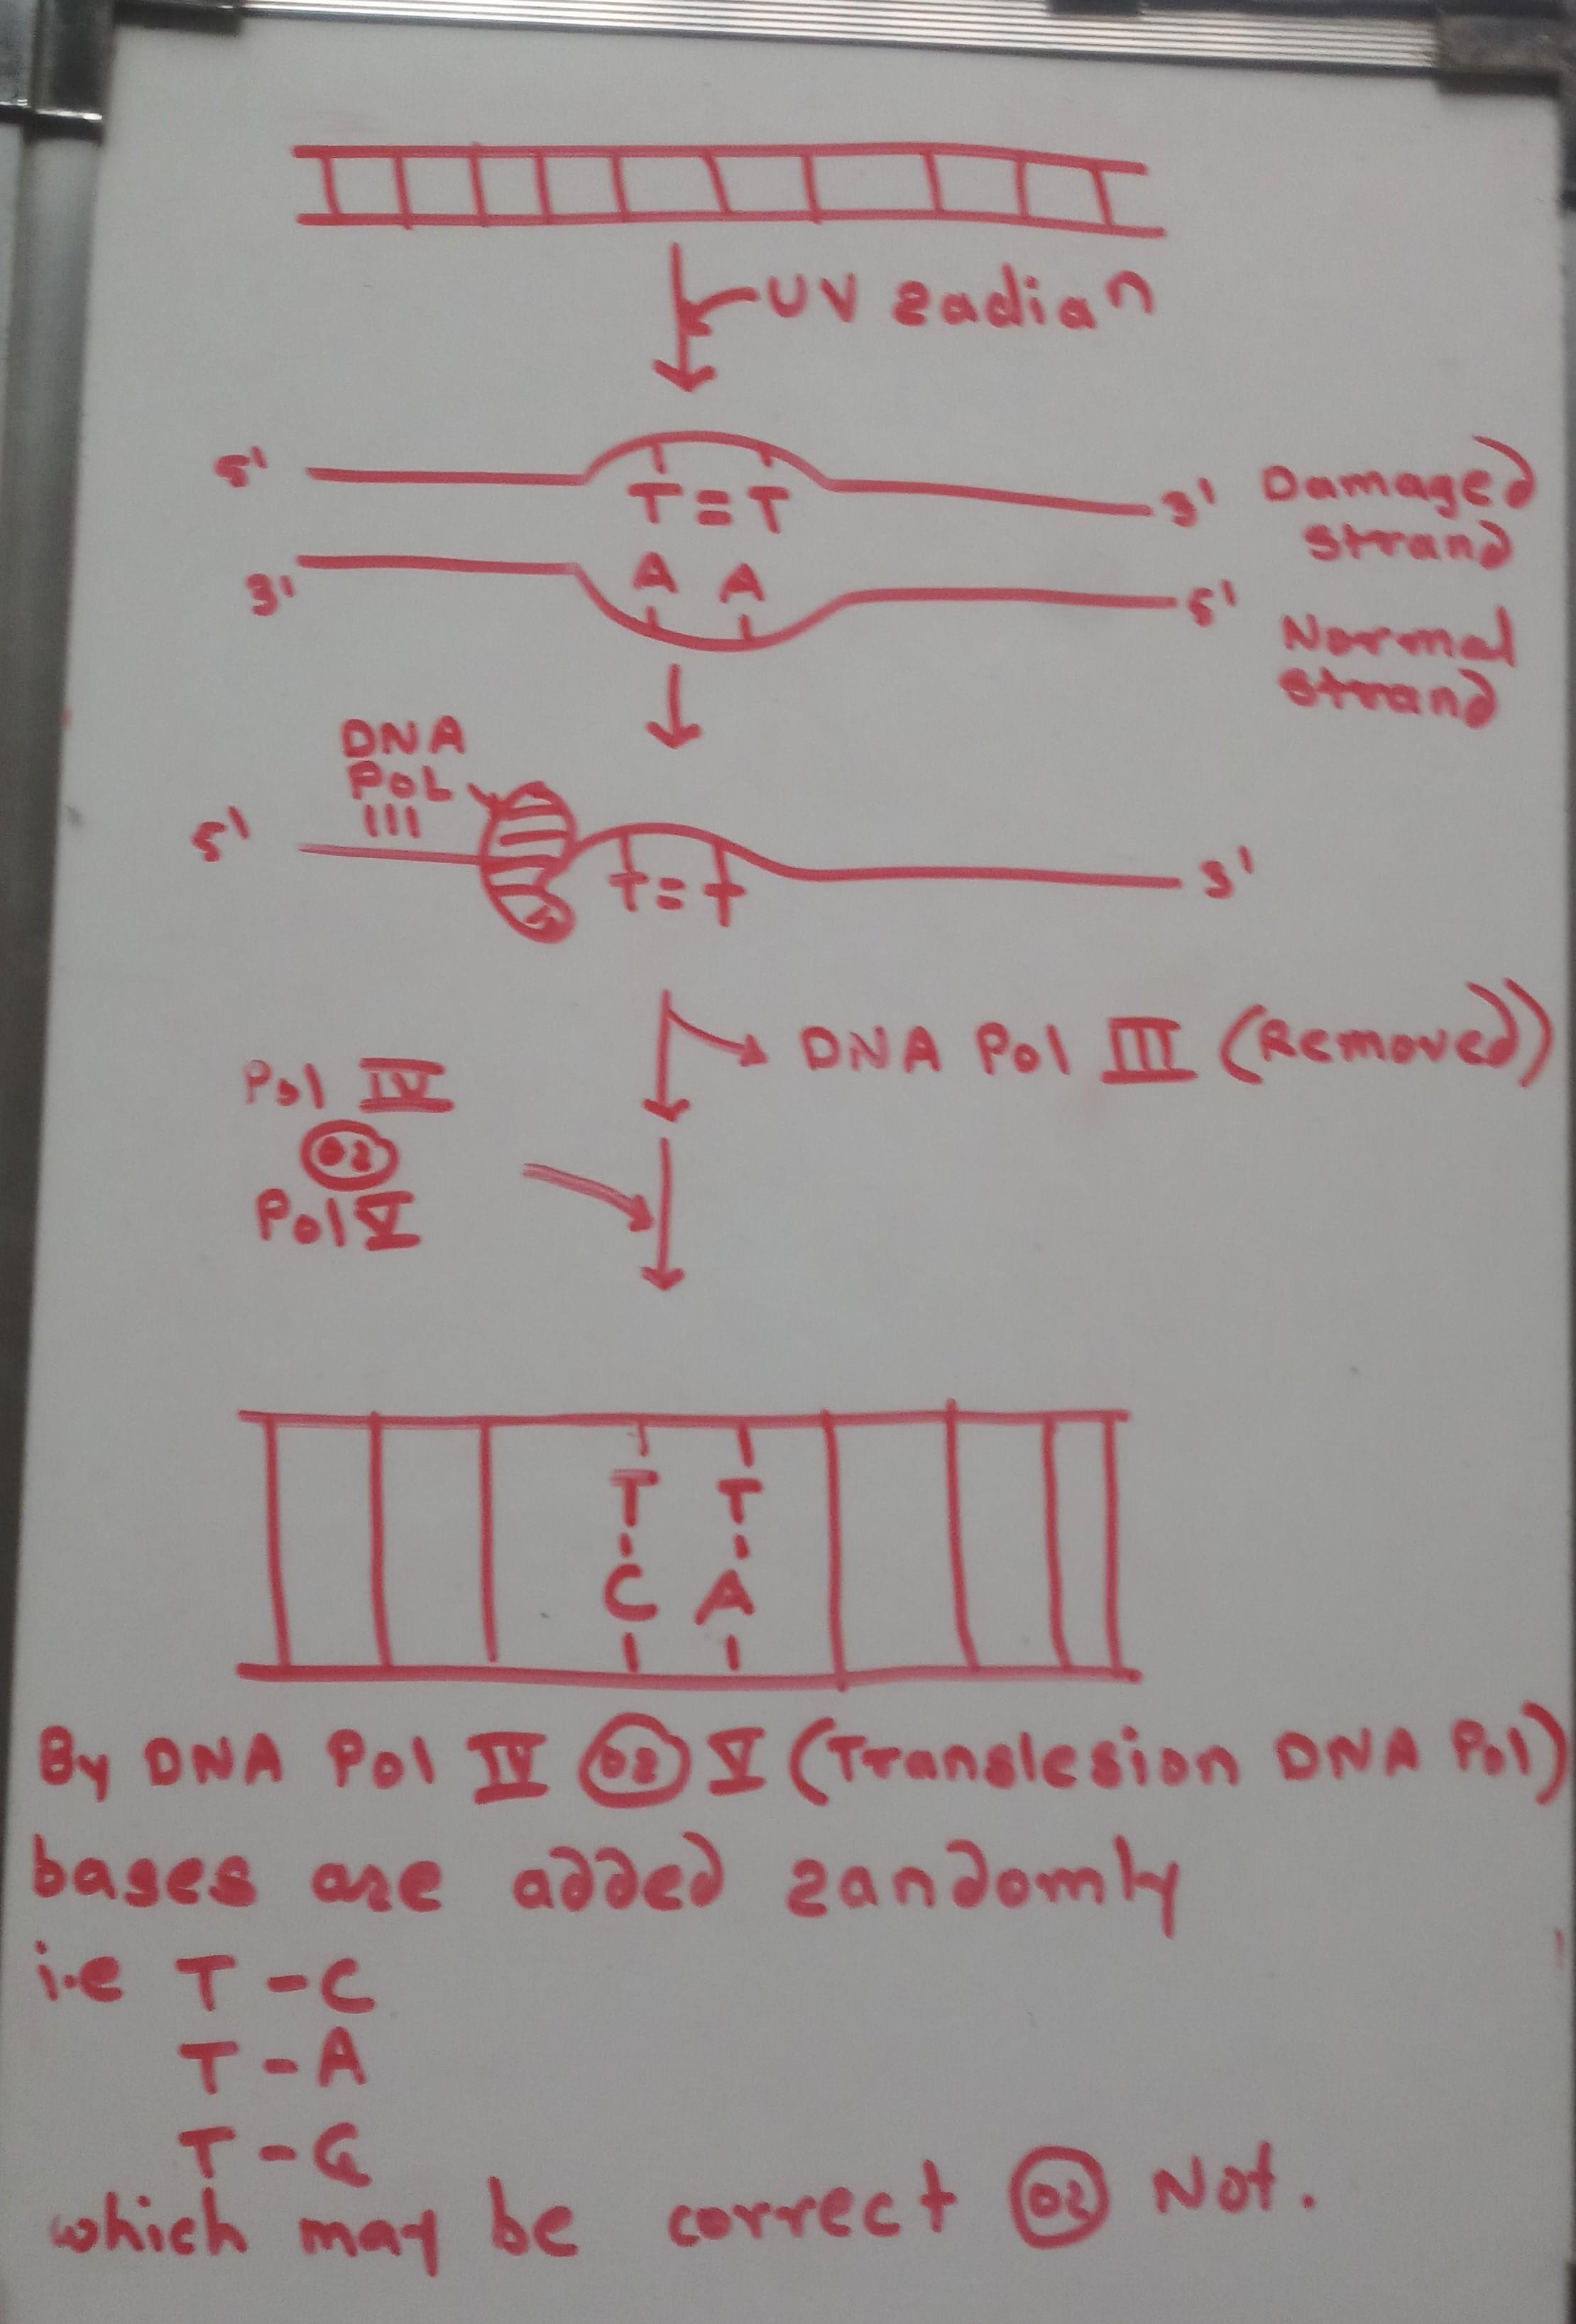 UV radian
5' T=T 3' Damaged
strand
3' A A 5' Normal
strand
DNA
POL
III
5' t=t 3'
DNA Pol III (Removed)
Pol IV
or
Pol V
T T
C A
By DNA Pol IV or V (Translesion DNA Pol)
bases are added randomly
i.e T - C
T - A
T - G
which may be correct or Not.